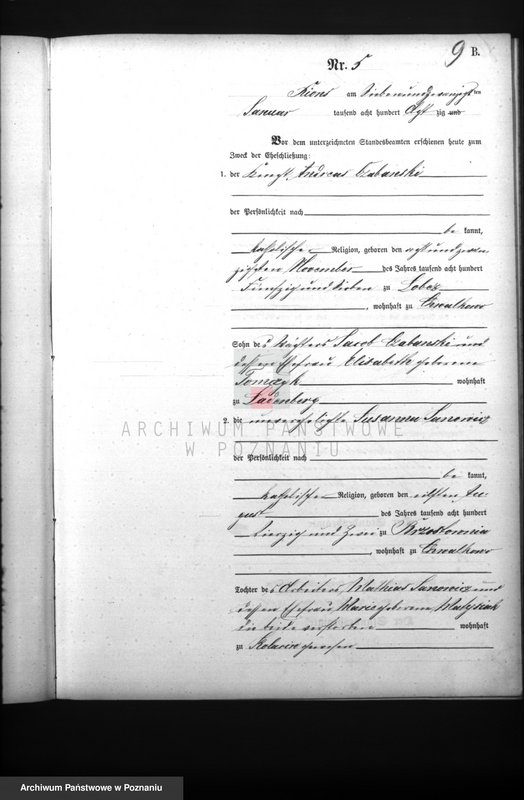 9 B.
Nr. 5
Xions am Siebenundzwanzigsten
Januar tausend acht hundert Acht zig und
Vor dem unterzeichneten Standesbeamten erschienen heute zum
Zweck der Eheschließung:
1. der Knecht Andreas Czabanski
der Persönlichkeit nach
be kannt,
katholischer Religion, geboren den acht und zwan
zigsten November des Jahres tausend acht hundert
Fünfzig und sieben zu Lobez
, wohnhaft zu Chwalkowo
Sohn des Wächters Jacob Czabanski und
dessen Ehefrau Elisabeth geborene
Tomczyk wohnhaft
zu Ladenberg
2. die unverehelichte Susanna Janowicz
der Persönlichkeit nach
be kannt,
katholischer Religion, geboren den elften Au
gust des Jahres tausend acht hundert
vierzig und zwei zu Brzostownia
, wohnhaft zu Chwalkowo
Tochter des Arbeiters Mathias Janowicz und
dessen Ehefrau Marie geborene Matysiak
die beide verstorben wohnhaft
zu gewesen
ARCHIWUM PAŃSTWOWE
W POZNANIU
Archiwum Państwowe w Poznaniu